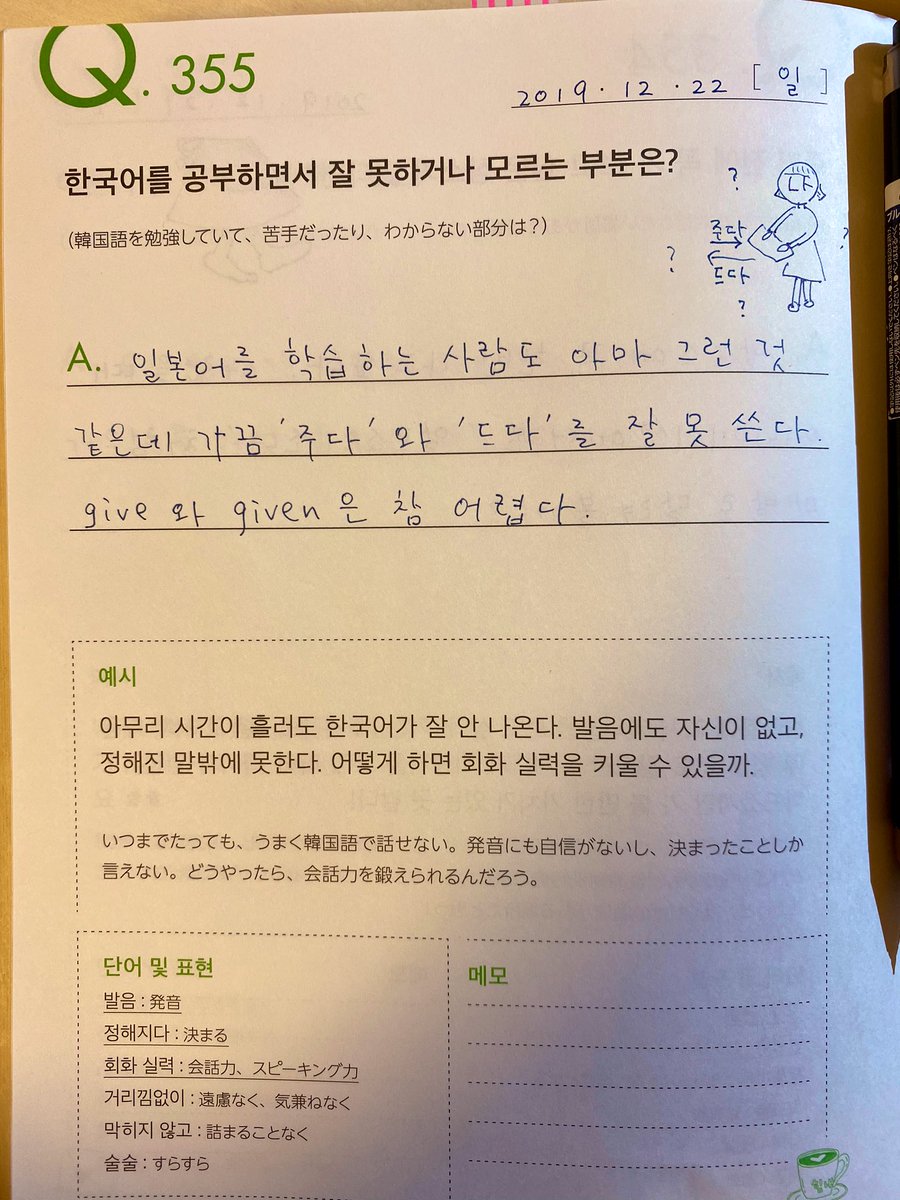 Q. 355
2019.12.22 [일]
한국어를 공부하면서 잘 못하거나 모르는 부분은?
(韓国語を勉強していて、苦手だったり、わからない部分は?)
?
나
?
준다
?
드다
?
A. 일본어를 학습하는 사람도 아마 그런 것
같은데 가끔 '주다' 와 '드다'를 잘 못 쓴다.
give 와 given은 참 어렵다.
예시
아무리 시간이 흘러도 한국어가 잘 안 나온다. 발음에도 자신이 없고,
정해진 말밖에 못한다. 어떻게 하면 회화 실력을 키울 수 있을까.
いつまでたっても、うまく韓国語で話せない。発音にも自信がないし、決まったことしか
言えない。どうやったら、会話力を鍛えられるんだろう。
단어 및 표현
발음 : 発音
정해지다 : 決まる
회화 실력 : 会話力、スピーキング力
거리낌없이 : 遠慮なく、気兼ねなく
막히지 않고 : 詰まることなく
술술 : すらすら
메모